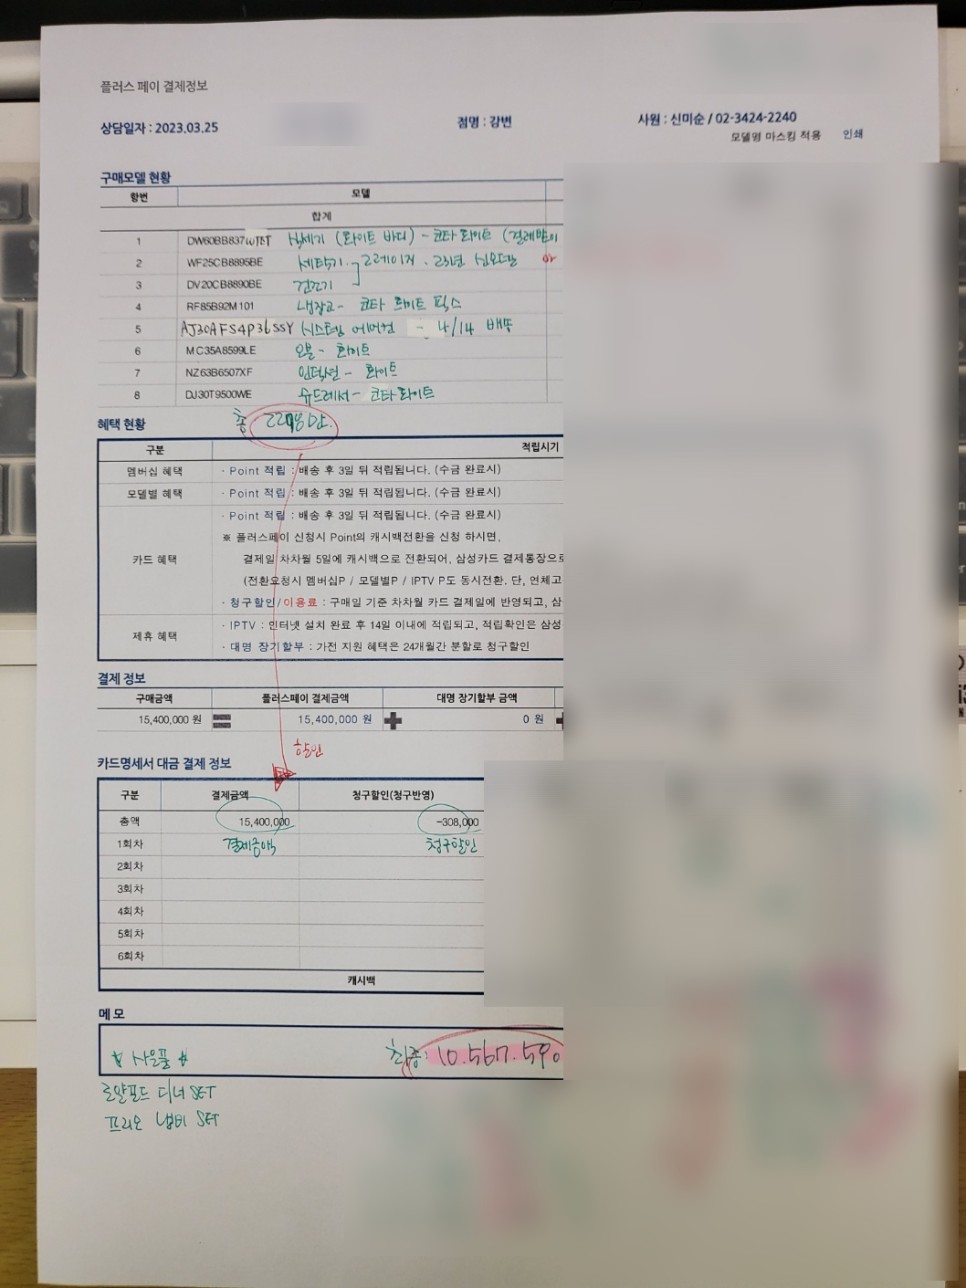 플러스 페이 결제정보
상담일자 : 2023.03.25 점명 : 강변 사원 : 신미순 / 02-3424-2240
모델명 마스킹 적용 인쇄
구매모델 현황
항번 모델
합계
1 DW60BB837WJBT 식세기 (화이트 바디) - 코타 화이트 (걸레받이
2 WF25CB8895BE 세탁기
3 DV20CB8890BE 건조기
그레이지. 23년 신모델
4 RF85B92M101 냉장고 - 코타 화이트 픽스
5 AJ30AFS4P36SSY 시스템 에어컨 - 4/14 배송
6 MC35A8599LE 오븐 - 화이트
7 NZ63B6507XF 인덕션 - 화이트
8 DJ30T9500WE 슈드레서 - 코타 화이트
총
혜택 현황
구분 적립시기
멤버십 혜택 · Point 적립 : 배송 후 3일 뒤 적립됩니다. (수금 완료시)
모델별 혜택 · Point 적립 : 배송 후 3일 뒤 적립됩니다. (수금 완료시)
카드 혜택 · Point 적립 : 배송 후 3일 뒤 적립됩니다. (수금 완료시)
※ 플러스페이 신청시 Point의 캐시백전환을 신청 하시면,
결제일 차차월 5일에 캐시백으로 전환되어, 삼성카드 결제통장으로
(전환요청시 멤버십P / 모델별P / IPTV P도 동시전환. 단, 연체고
· 청구할인/이용료 : 구매일 기준 차차월 카드 결제일에 반영되고, 삼
제휴 혜택 · IPTV : 인터넷 설치 완료 후 14일 이내에 적립되고, 적립확인은 삼성
· 대명 장기할부 : 가전 지원 혜택은 24개월간 분할로 청구할인
결제 정보
구매금액 플러스페이 결제금액 대명 장기할부 금액
15,400,000 원 = 15,400,000 원 + 0 원 +
할인
카드명세서 대금 결제 정보
구분 결제금액 청구할인(청구반영)
총액 15,400,000 -308,000
1회차 결제총액 청구할인
2회차
3회차
4회차
5회차
6회차
캐시백
메모
* 사은품 * 최종: 10.567.590
로얄폴드 디너 SET
프리오 냄비 SET